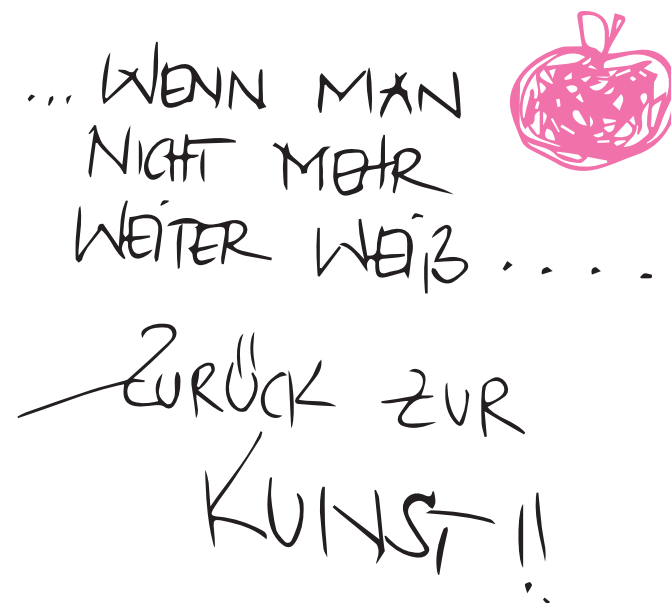 ... WENN MAN
NICHT MEHR
WEiTER WEiß ....
ZURÜCK ZUR
KUNST!!